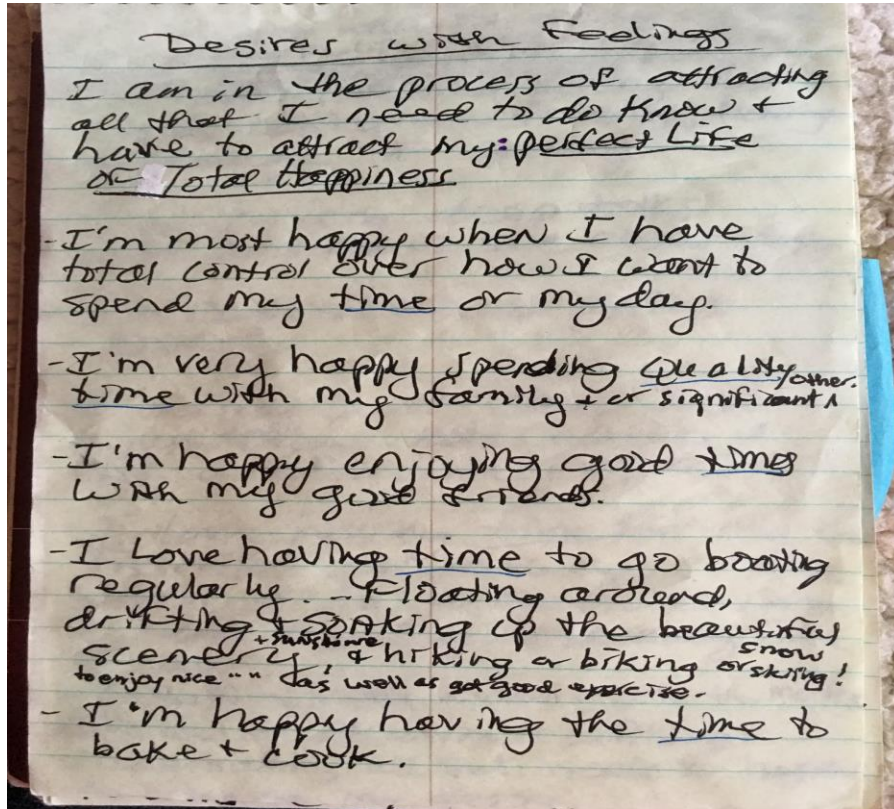 Desires with Feelings
I am in the process of attracting
all that I need to do know +
have to attract my: perfect Life
of Total Happiness
- I'm most happy when I have
total control over how I want to
spend my time or my day.
- I'm very happy spending Quality
time with my family + or significant other.
- I'm happy enjoying good times
with my good friends.
- I Love having time to go boating
regularly... Floating around,
drifting + soaking up the beautiful
scenery, + sunshine & hiking or biking or snow skiing!
to enjoy nice "" as well as get good exercise.
- I'm happy having the time to
bake + cook.